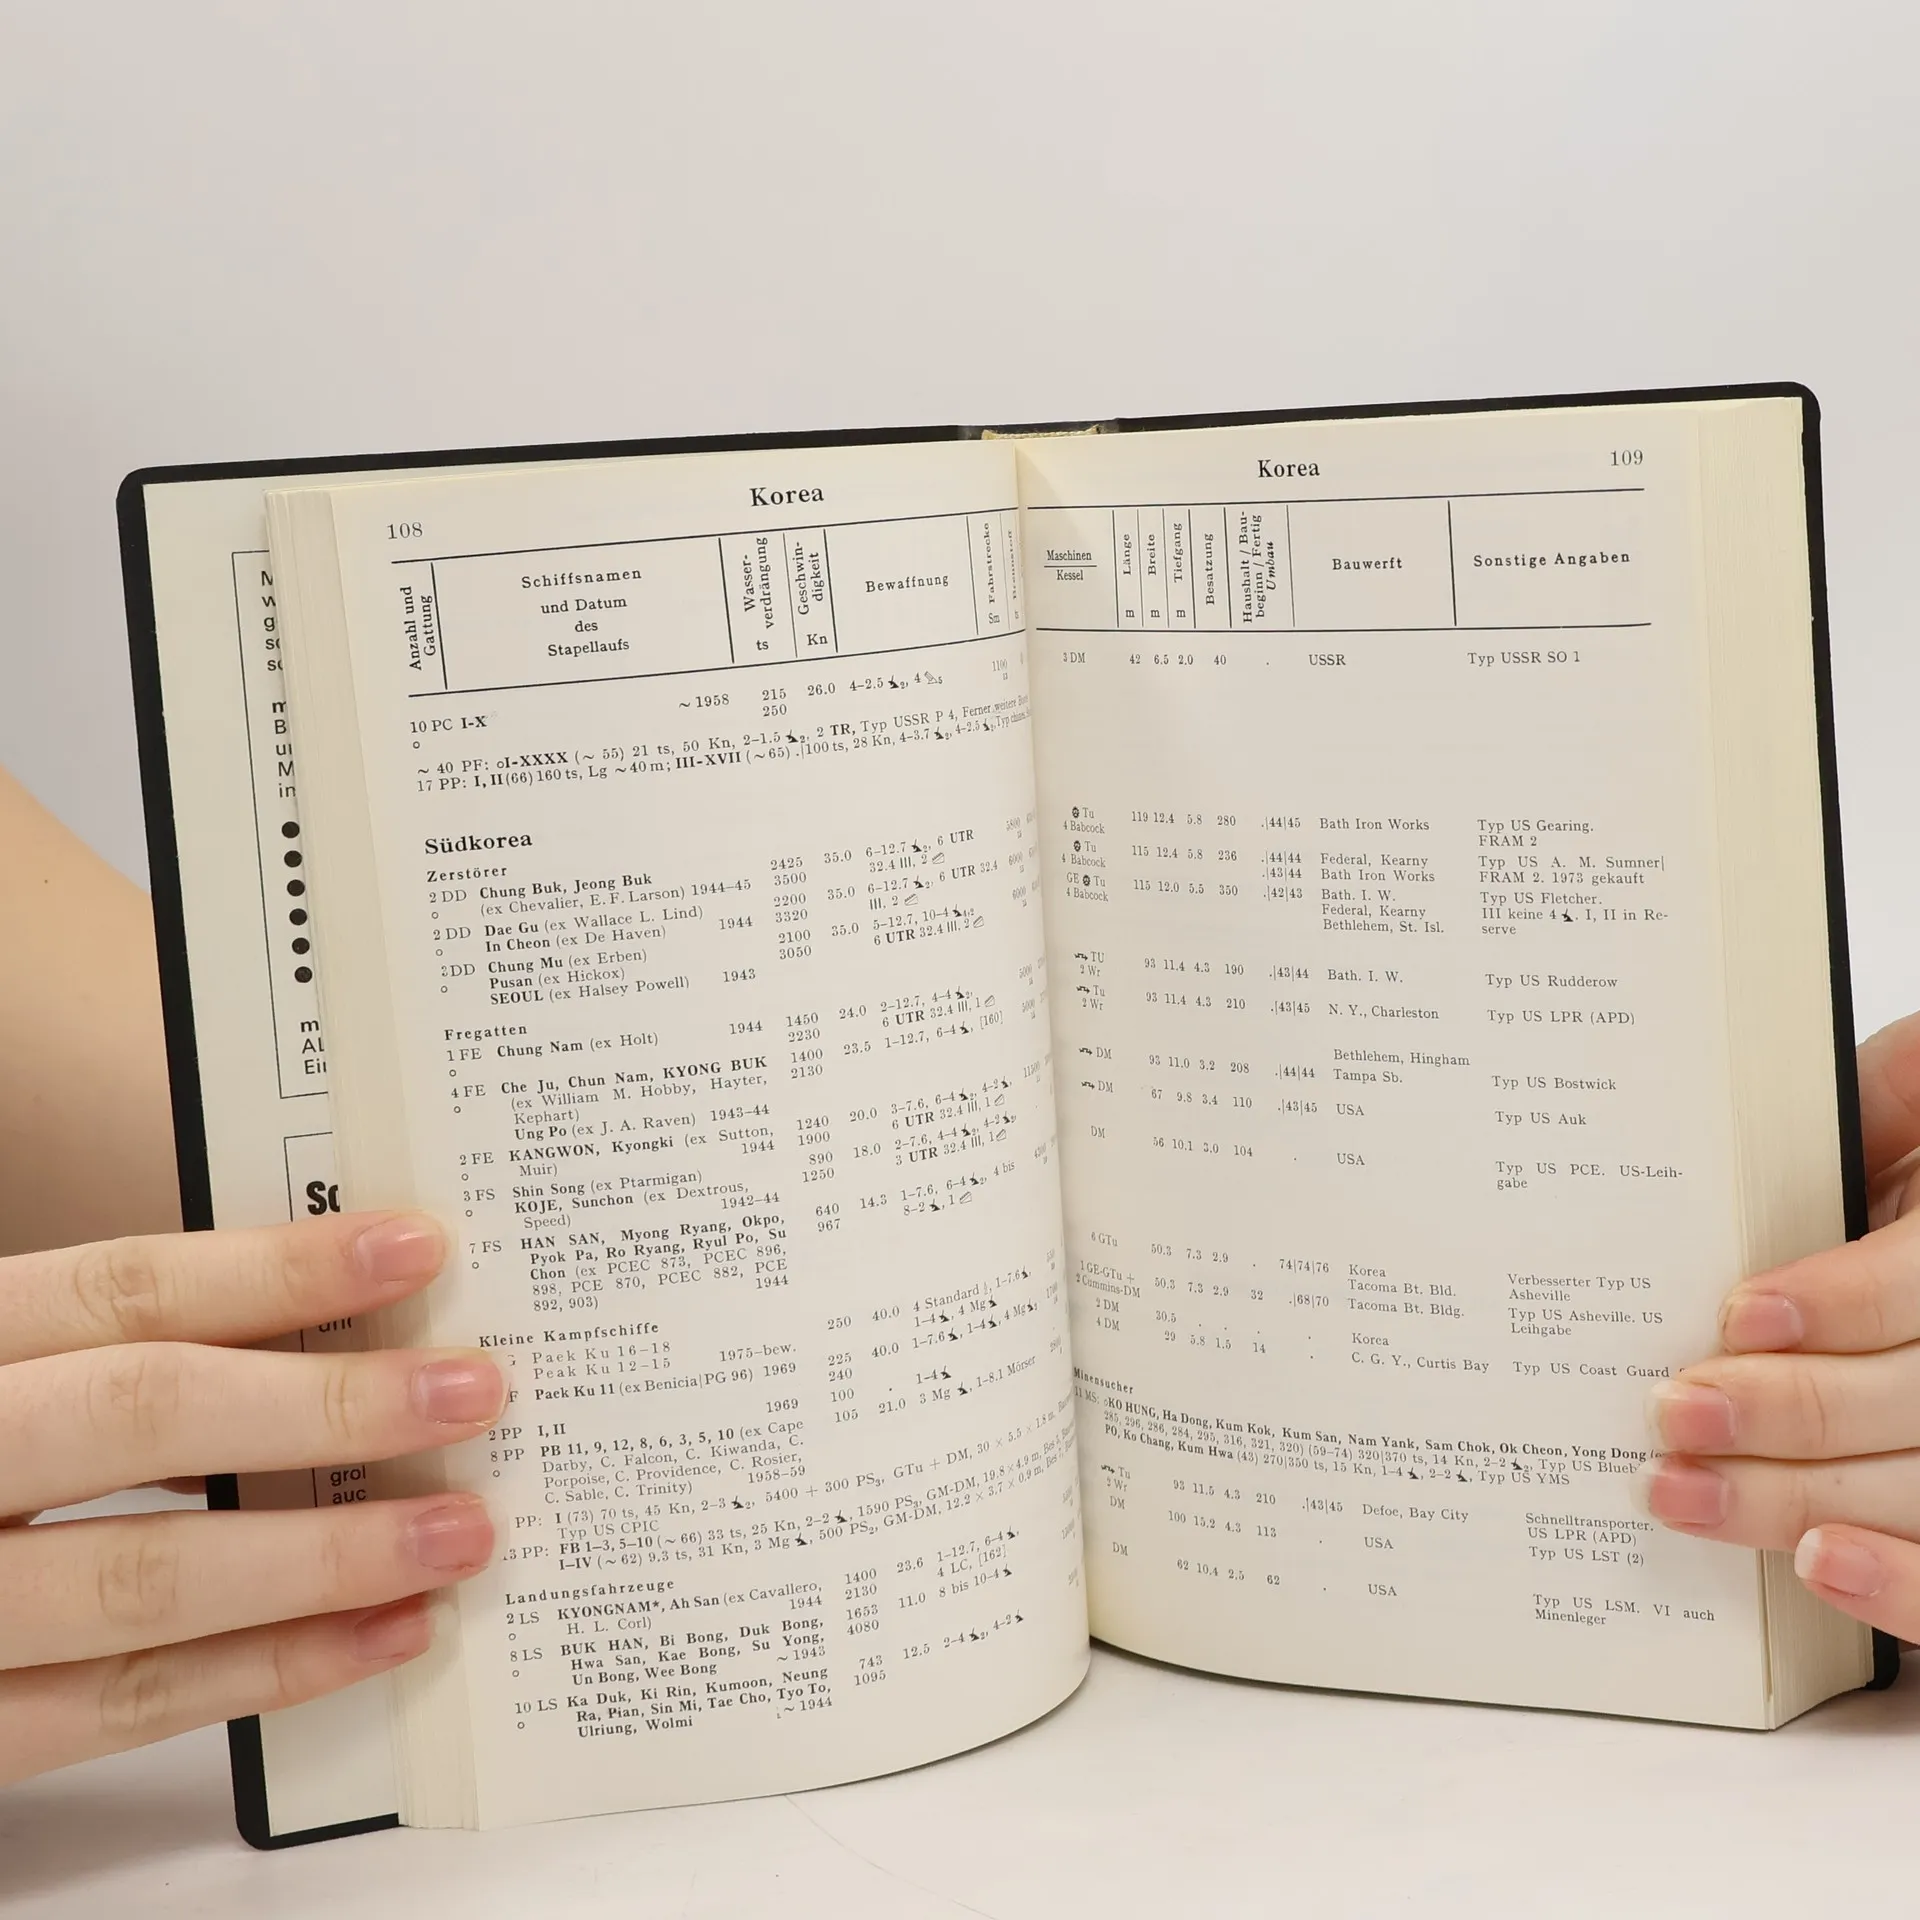 108
Korea
Anzahl und
Gattung
Schiffsnamen
und Datum
des
Stapellaufs
Wasser-
verdrängung
ts
Geschwin-
digkeit
Kn
Bewaffnung
Fahrstrecke
Sm
10 PC I-X ~ 1958 215 26.0 4–2.5 2, 4 5 1100
250
~ 40 PF: oI-XXXX (~ 55) 21 ts, 50 Kn, 2–1.5 2, 2 TR, Typ USSR P 4, Ferner weitere
17 PP: I, II (66) 160 ts, Lg ~ 40 m; III-XVII (~ 65) .|100 ts, 28 Kn, 4–3.7 2, 4–2.5 2, Typ
Südkorea
Zerstörer
2 DD Chung Buk, Jeong Buk 2425 35.0 6–12.7 2, 6 UTR
(ex Chevalier, E. F. Larson) 1944–45 3500 32.4 III, 2
2 DD Dae Gu (ex Wallace L. Lind) 2200 35.0 6–12.7 2, 6 UTR 32.4
In Cheon (ex De Haven) 1944 3320 III, 2
3 DD Chung Mu (ex Erben) 2100 35.0 5–12.7, 10–4
Pusan (ex Hickox) 3050 6 UTR 32.4 III, 2
SEOUL (ex Halsey Powell) 1943
Fregatten
1 FE Chung Nam (ex Holt) 1944 1450 24.0 2–12.7, 4–4 2,
2230 6 UTR 32.4 III, 1
4 FE Che Ju, Chun Nam, KYONG BUK 1400 23.5 1–12.7, 6–4 , [160]
(ex William M. Hobby, Hayter, 2130
Kephart)
Ung Po (ex J. A. Raven) 1943–44
2 FE KANGWON, Kyongki (ex Sutton, 1240 20.0 3–7.6, 6–4 2, 4–2 ,
Muir) 1944 1900 6 UTR 32.4 III, 1
3 FS Shin Song (ex Ptarmigan) 890 18.0 2–7.6, 4–4 2, 4–2 2,
KOJE, Sunchon (ex Dextrous, 1250 3 UTR 32.4 III, 1
Speed) 1942–44
7 FS HAN SAN, Myong Ryang, Okpo, 640 14.3 1–7.6, 6–4 2, 4 bis
Pyok Pa, Ro Ryang, Ryul Po, Su 967 8–2 , 1
Chon (ex PCEC 873, PCEC 896,
898, PCE 870, PCEC 882, PCE
892, 903) 1944
Kleine Kampfschiffe
Paek Ku 16–18 250 40.0 4 Standard , 1–7.6 ,
Peak Ku 12–15 1975–bew. 1–4 , 4 Mg
Paek Ku 11 (ex Benicia|PG 96) 1969 225 40.0 1–7.6 , 1–4 , 4 Mg 2
240
2 PP I, II 1969 100 . 1–4
8 PP PB 11, 9, 12, 8, 6, 3, 5, 10 (ex Cape 105 21.0 3 Mg , 1–8.1 Mörser
Darby, C. Falcon, C. Kiwanda, C.
Porpoise, C. Providence, C. Rosier,
C. Sable, C. Trinity) 1958–59
PP: I (73) 70 ts, 45 Kn, 2–3 2, 5400 + 300 PS3, GTu + DM, 30 × 5.5 × 1.8 m,
Typ US CPIC
3 PP: FB 1–3, 5–10 (~ 66) 33 ts, 25 Kn, 2–2 , 1590 PS3, GM-DM, 19.8 × 4.9 m, Bes 5,
I–IV (~ 62) 9.3 ts, 31 Kn, 3 Mg , 500 PS2, GM-DM, 12.2 × 3.7 × 0.9 m, Bes 7,
Landungsfahrzeuge
2 LS KYONGNAM*, Ah San (ex Cavallero, 1400 23.6 1–12.7, 6–4 ,
H. L. Corl) 1944 2130 4 LC, [162]
8 LS BUK HAN, Bi Bong, Duk Bong, 1653 11.0 8 bis 10–4
Hwa San, Kae Bong, Su Yong, 4080
Un Bong, Wee Bong ~ 1943
10 LS Ka Duk, Ki Rin, Kumoon, Neung 743 12.5 2–4 2, 4–2
Ra, Pian, Sin Mi, Tae Cho, Tyo To, 1095
Ulriung, Wolmi ~ 1944
Korea
109
Maschinen
Kessel
Länge
m
Breite
m
Tiefgang
m
Besatzung
Haushalt / Bau-
beginn / Fertig
Umbau
Bauwerft
Sonstige Angaben
3 DM 42 6.5 2.0 40 . USSR Typ USSR SO 1
Tu 119 12.4 5.8 280 .|44|45 Bath Iron Works Typ US Gearing.
4 Babcock FRAM 2
Tu 115 12.4 5.8 236 .|44|44 Federal, Kearny Typ US A. M. Sumner|
4 Babcock .|43|44 Bath Iron Works FRAM 2. 1973 gekauft
GE Tu 115 12.0 5.5 350 .|42|43 Bath. I. W. Typ US Fletcher.
4 Babcock Federal, Kearny III keine 4 . I, II in Re-
Bethlehem, St. Isl. serve
TU 93 11.4 4.3 190 .|43|44 Bath. I. W. Typ US Rudderow
2 Wr
Tu 93 11.4 4.3 210 .|43|45 N. Y., Charleston Typ US LPR (APD)
2 Wr
Bethlehem, Hingham
DM 93 11.0 3.2 208 .|44|44 Tampa Sb. Typ US Bostwick
DM 67 9.8 3.4 110 .|43|45 USA Typ US Auk
DM 56 10.1 3.0 104 . USA Typ US PCE. US-Leih-
gabe
6 GTu 50.3 7.3 2.9 . 74|74|76 Korea Verbesserter Typ US
Tacoma Bt. Bld. Asheville
1 GE-GTu + 50.3 7.3 2.9 32 .|68|70 Tacoma Bt. Bldg. Typ US Asheville. US
2 Cummins-DM Leihgabe
2 DM 30.5 . . . . Korea
4 DM 29 5.8 1.5 14 . C. G. Y., Curtis Bay Typ US Coast Guard
Minensucher
11 MS: oKO HUNG, Ha Dong, Kum Kok, Kum San, Nam Yank, Sam Chok, Ok Cheon, Yong Dong
285, 296, 286, 284, 295, 316, 321, 320) (59–74) 320|370 ts, 14 Kn, 2–2 2, Typ US
PO, Ko Chang, Kum Hwa (43) 270|350 ts, 15 Kn, 1–4 , 2–2 , Typ US YMS
Tu 93 11.5 4.3 210 .|43|45 Defoe, Bay City Schnelltransporter.
2 Wr US LPR (APD)
DM 100 15.2 4.3 113 . USA Typ US LST (2)
DM 62 10.4 2.5 62 . USA Typ US LSM. VI auch
Minenleger